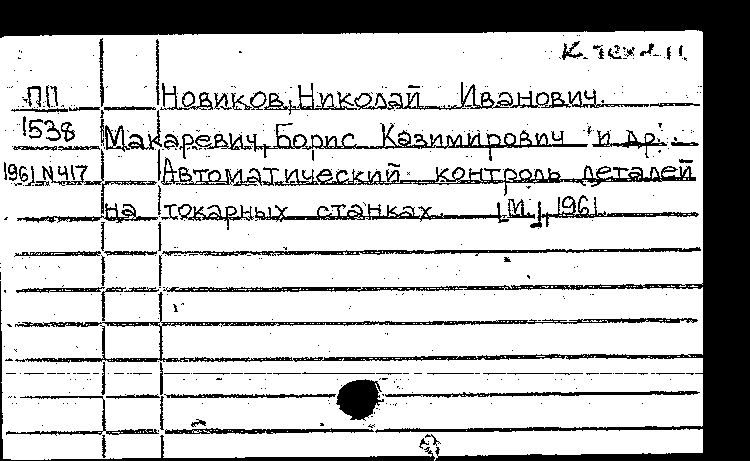 К. техн 11
ПП Новиков, Николай Иванович.
1538 Макаревич, Борис Казимирович и др.
1961 N417 Автоматический контроль деталей
на токарных станках. [М.], 1961.